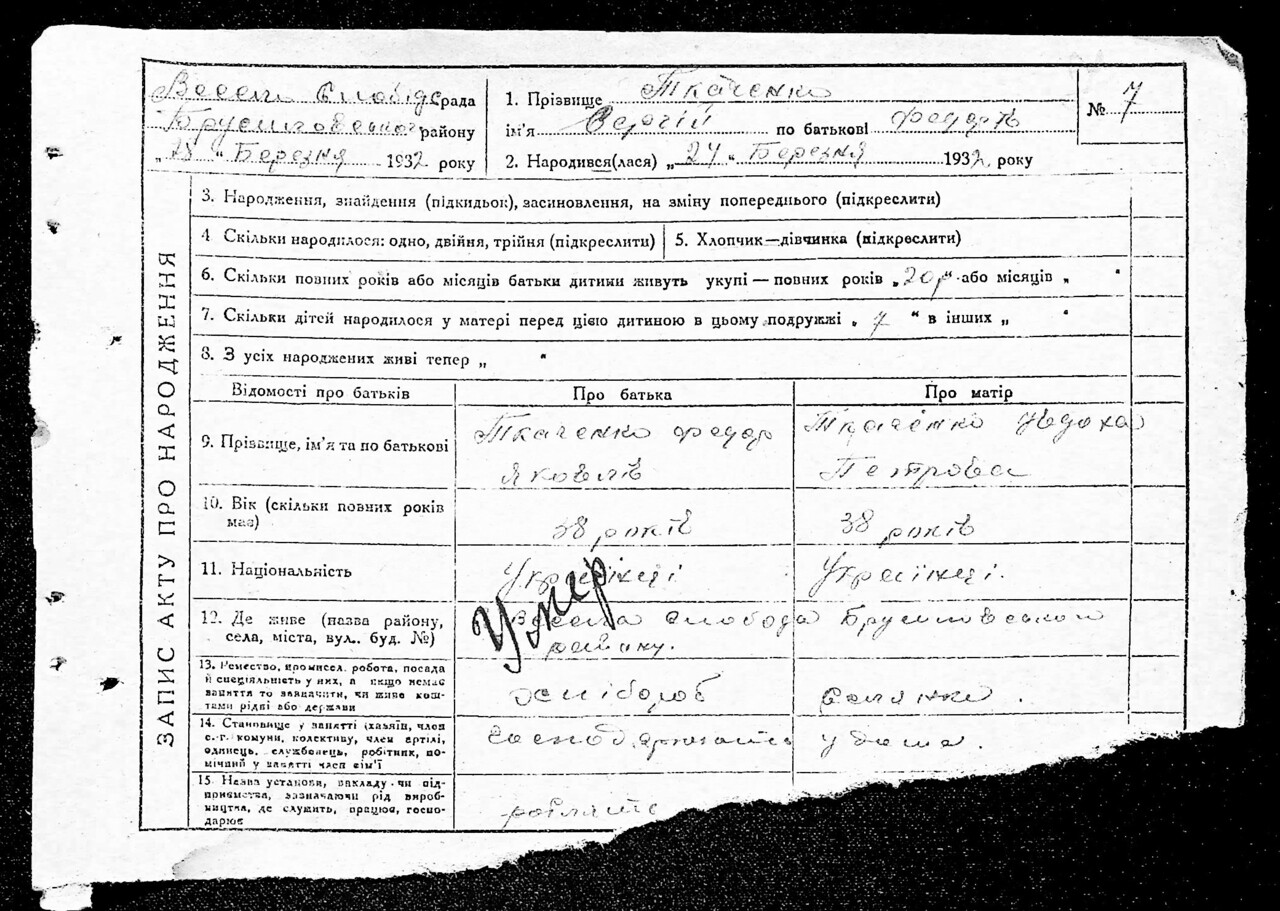 Весела Слобіда рада
Брусилівського району
„ 28 “ Березня 1932 року
1. Прізвище Ткаченко
ім'я Сергій по батькові Федорів
2. Народився(лася) „ 24 “ Березня 1932 року
№ 7
ЗАПИС АКТУ ПРО НАРОДЖЕННЯ
3. Народження, знайдення (підкидьок), засиновлення, на зміну попереднього (підкреслити)
4. Скільки народилося: одно, двійня, трійня (підкреслити)
5. Хлопчик—дівчинка (підкреслити)
6. Скільки повних років або місяців батьки дитини живуть укупі — повних років „ 20 р “ або місяців „ “
7. Скільки дітей народилося у матері перед цією дитиною в цьому подружжі „ 7 “ в інших „ “
8. З усіх народжених живі тепер „ “
Відомості про батьків
Про батька
Про матір
9. Прізвище, ім'я та по батькові
Ткаченко Федор
Яковлів
Ткаченко Увдоха
Петрова
10. Вік (скільки повних років
має)
38 років
38 років
11. Національність
Українці
Українці.
Умер
12. Де живе (назва району,
села, міста, вул.. буд. №)
Весела Слобода Брусиловського
району.
13. Ремество, промисел, робота, посада
й спеціяльність у них, а якщо немає
заняття то зазначити, чи живе кош-
тами рідні або держави
хлібороб
селянка.
14. Становище у занятті (хазяїн, член
с.-г. комуни, колективу, член артілі,
одинець, службовець, робітник, по-
мічний у занятті член сім'ї
удома.
15. Назва установи, закладу чи під-
приємства, зазначаючи рід вироб-
ництва, де служить, працює, госпо-
дарює